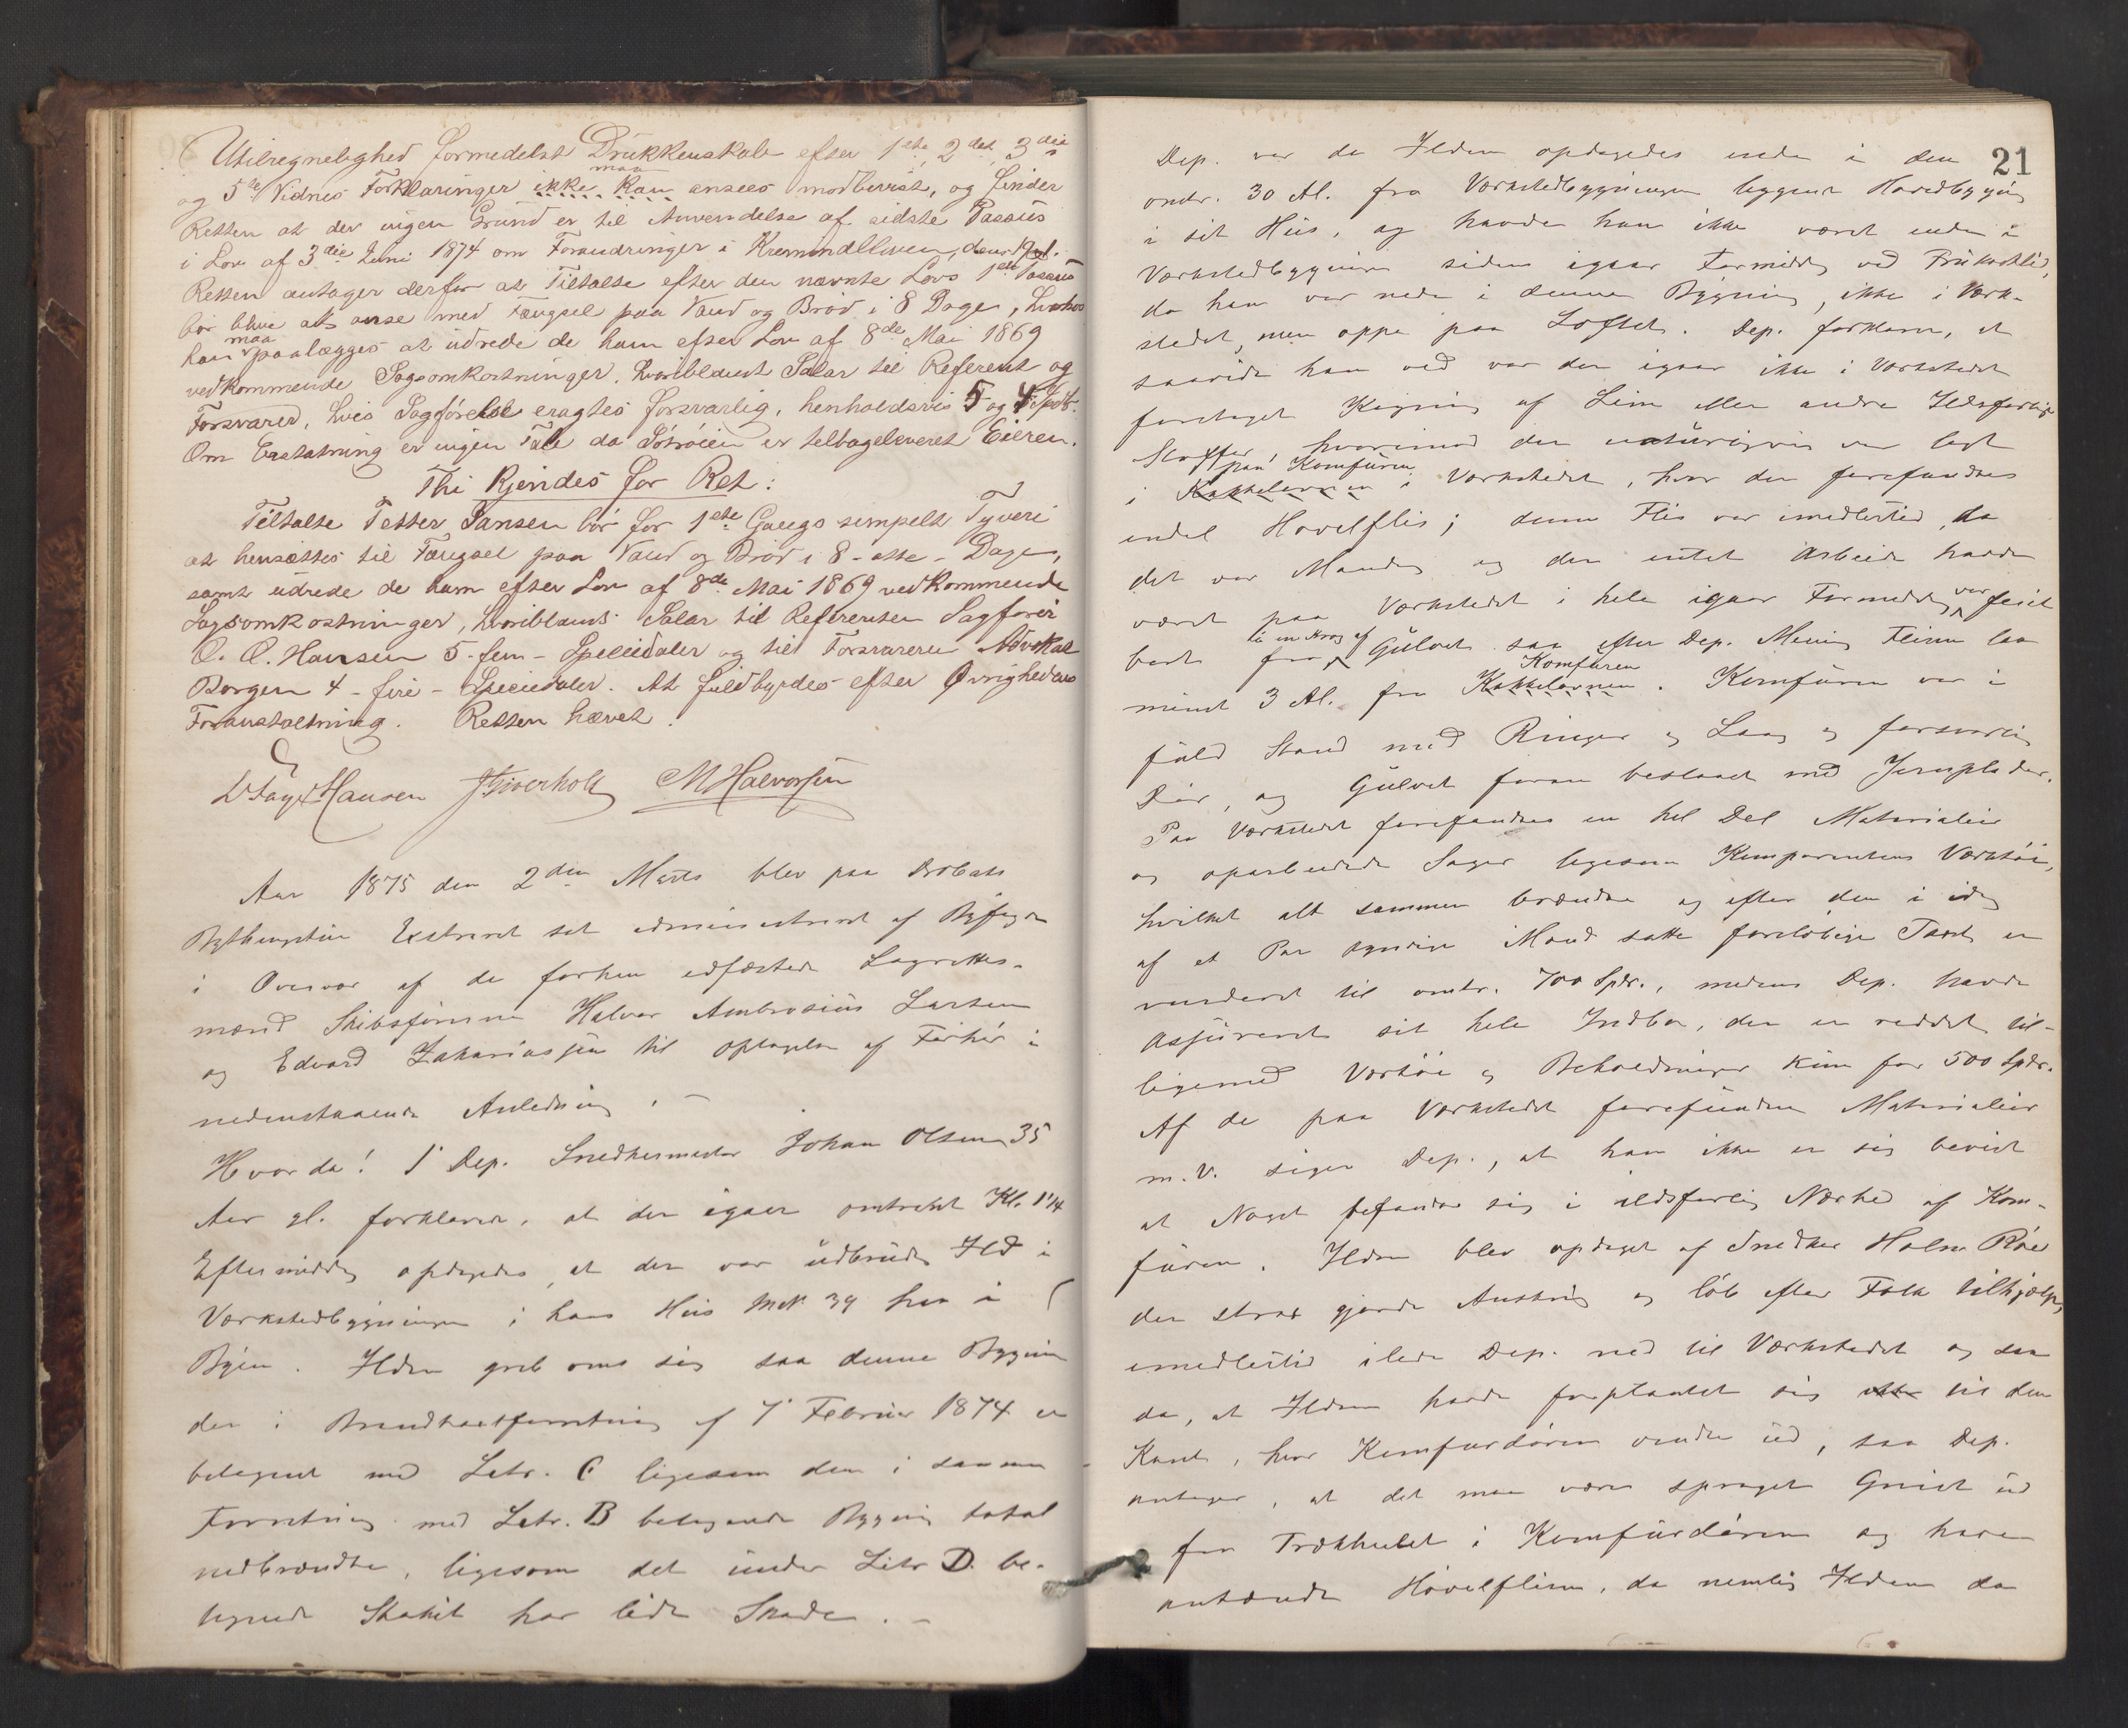 Utilregnelighed formedelst Drukkenskab efter 1ste, 2det, 3die
og 5te Vidnes Forklaringer ikke kan maa ansees modbevist, og finder
Retten at der ingen Grund er til Anvendelse af sidste Passus
i Lov af 3die Juni 1874 om Forandringer i Kriminalloven, dens
Retten antager derfor at Tiltalte efter den nævnte Lovs 1ste Passus
bør blive at anse med Fængsel paa Vand og Brød i 8 Dage,
han maa paalægges at udrede de ham efter Lov af 8de Mai 1869
vedkommende Sagsomkostninger, hvoriblandt Salær til Referent og
Forsvarer, hvis Sagførelse eragtes forsvarlig, henholdsvis 5 og 4 Spd.
Om Erstatning er ingen Tale da Sørøien er tilbageleveret Eieren.
Thi Kjendes for Ret:
Tiltalte Petter Jansen bør for 1ste Gangs simpelt Tyveri
at hensættes til Fængsel paa Vand og Brød i 8 - otte - Dage,
samt udrede de ham efter Lov af 8de Mai 1869 vedkommende
Sagsomkostninger, hvoriblandt Salær til Referenten Sagfører
O. C. Hansen 5 - fem - Speciedaler og til Forsvareren Advokat
Borgen 4 - fire - Speciedaler. At fuldbyrdes efter Øvrighedens
Foranstaltning. Retten hævet.
Hansen M Halvorsen
Aar 1875 den 2den Marts blev paa Drøbaks
Bythingstue Extraret sat administreret af Byfogden
i Overvær af de forhen edfæstede Lagrettes-
mænd Skibsførerne Halvor Ambrosius Larsen
og Edvard Zakariassen til Optagelse af Forhør i
nedenstaaende Anledning. -
Hvorda! 1' Dep. Snedkermester Johan Olsen 35
Aar gl. forklarer, at der igaar omtrent Kl. 1 1/4
Eftermiddag opdagedes, at der var udbrudt Ild i
Værkstedbygningen i hans Hus Mat. 39 her i
Byen. Ilden greb om sig saa denne Bygning
der i Brandtaxtforretning af 7' Februar 1874 er
betegnet med Latr. C ligesom den i samme
Forretning med Latr. B betegnede Bygning total
nedbrændte, ligesom det under Litr D. be-
tegnede Stakit har lidt Skade. -
21
Dep. var da Ilden opdagedes inde i den
omtr. 30 Al. fra Værkstedbygningen liggende Hovedbygning
i sit Hus, og havde han ikke været inde i
Værkstedbygningen siden igaar Formiddag ved Frokosttid,
da han var nede i denne Bygning, ikke i Værk-
stedet, men oppe paa Loftet. Dep. forklarer, at
saavidt han ved var der igaar ikke i Værkstedet
foretaget Kogning af Lim eller andre Ildsfarlige
Stoffer hvorimod der naturligvis var lagt
i Kakkelovnen paa Komfuren i Værkstedet, hvor der forefandtes
endel Høvelflis; denne Flis var imedlertid, da
det var Mandag og der intet Arbeide havde
været paa Værkstedet i hele igaar Formiddag var feiet
bort fra i en Krog af Gulvet saa efter Dep. Mening Flisen laa
mindst 3 Al. fra Kakkelovnen Komfuren. Komfuren var i
fuld Stand med Ringer og Laag og forsvarlig
Dør, og Gulvet foran beslaaet med Jernplader.
Paa Værkstedet forefandtes en hel Del Materialier
og oparbeidede Sager ligesom Komparentens Værktøi,
hvilket alt sammen brændte og efter den i idag
af et Par kyndige Mænd satte foreløbige Taxt er
vurderet til omtr. 700 Spdr., medens Dep. havde
assureret sit hele Indbo, der er reddet til-
ligemed Værtøi og Beholdninger kun for 500 Spdr.
Af de paa Værkstedet forefundne Materialier
m. v. siger Dep., at han ikke er sig bevist
at Noget befandt sig i ildsfarlig Nærhed af Kom-
furen. Ilden blev opdaget af Snedker Holm Røer
der strax gjorde Anskrig og løb efter Folk tilhjælp,
imedlertid ilede Dep. ned til Værkstedet og saa
da, at Ilden havde forplantet sig til den
Kant, hvor Komfurdøren vendte ud, saa Dep.
antager, at det maa være sprugget Gnist ud
fra Trækhullet i Komfurdøren og have
antændt Høvelflisen, da nemlig Ilden da